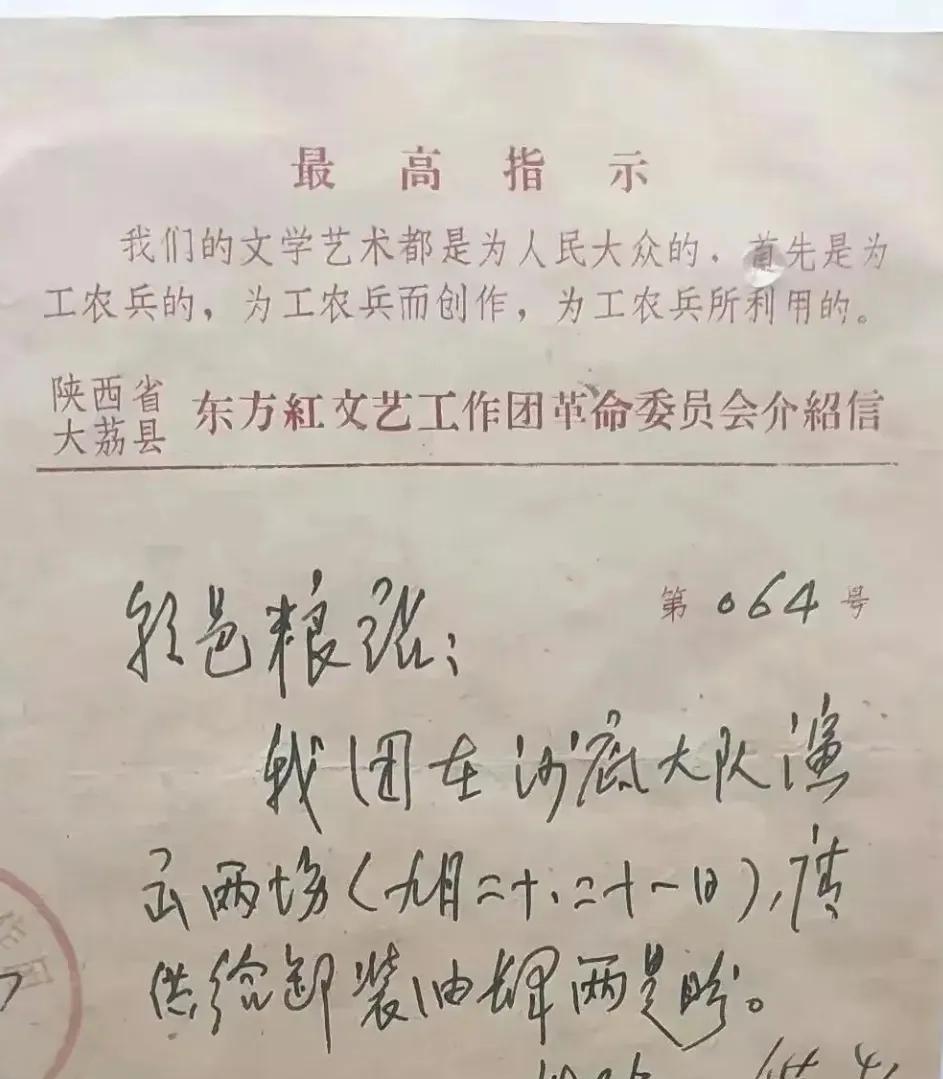 最高指示
我们的文学艺术都是为人民大众的，首先是为
工农兵的，为工农兵而创作，为工农兵所利用的。
陕西省
大荔县
东方紅文艺工作团革命委员会介紹信
第 064 号
邑粮站：
我团在沙底大队演
出两场（九月二十、二十一日），请
供给卸装油